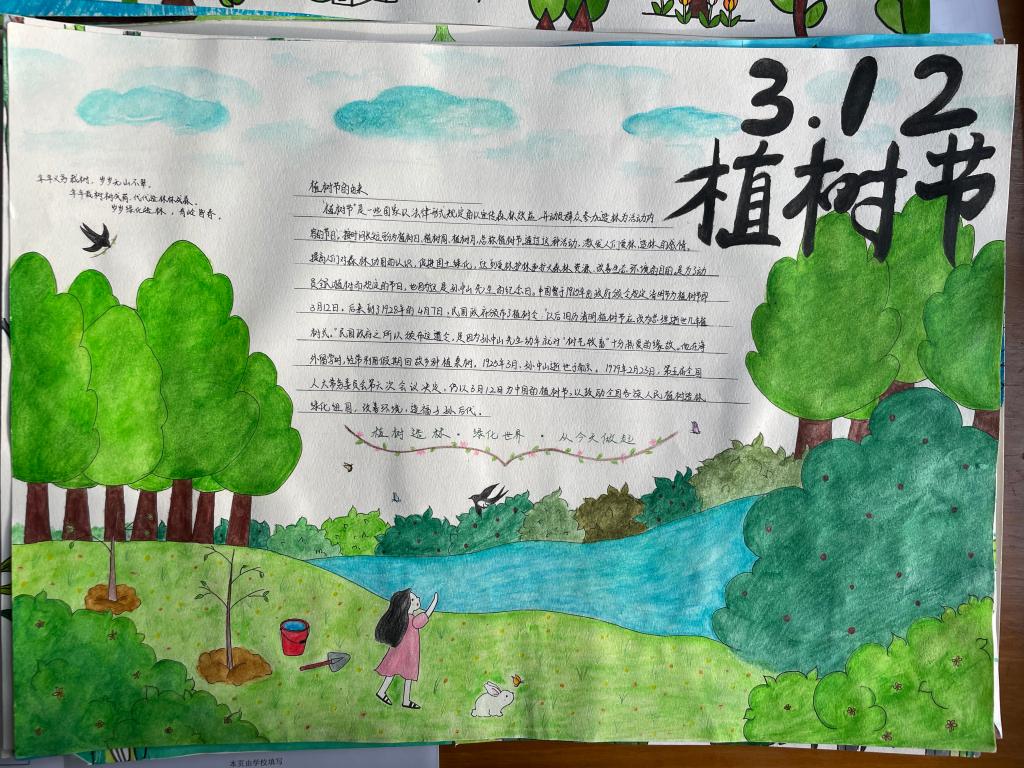 3.12
植树节
年年义务栽树，岁岁无山不翠。
年年栽树树成荫，代代造林林成森。
岁岁绿化造林，青岭留春。
植树节的由来
植树节"是一些国家以法律形式规定的以宣传森林效益，并动员群众参加造林为活动内
容的节日。按时间长短可分为植树日、植树周、植树月，总称植树节。通过这种活动，激发人们爱林、造林的感情，
提高人们对森林功用的认识，促进国土绿化，达到爱林护林和扩大森林资源、改善生态环境的目的。是为了动
员全民植树而规定的节日。也因为这是孙中山先生的纪念日。中国曾于1915年由政府规定清明节为植树节即
3月12日，后来到了1928年的4月7日，民国政府颁布了植树令"以后旧历清明植树节应改为总理逝世几年植
树式。"民国政府之所以颁布这遗令，是因为孙中山先生幼年就对"树艺牧畜"十分热爱的缘故。他在海
外留学时，经常利用假期回故乡种植桑树，1925年3月，孙中山逝世于南京。1979年2月23日，第五届全国
人大常务委员会第六次会议决定，仍以3月12日为中国的植树节，以鼓励全国各族人民植树造林
绿化祖国，改善环境，造福子孙后代。
植树造林·绿化世界·从今天做起
本页由学校填写